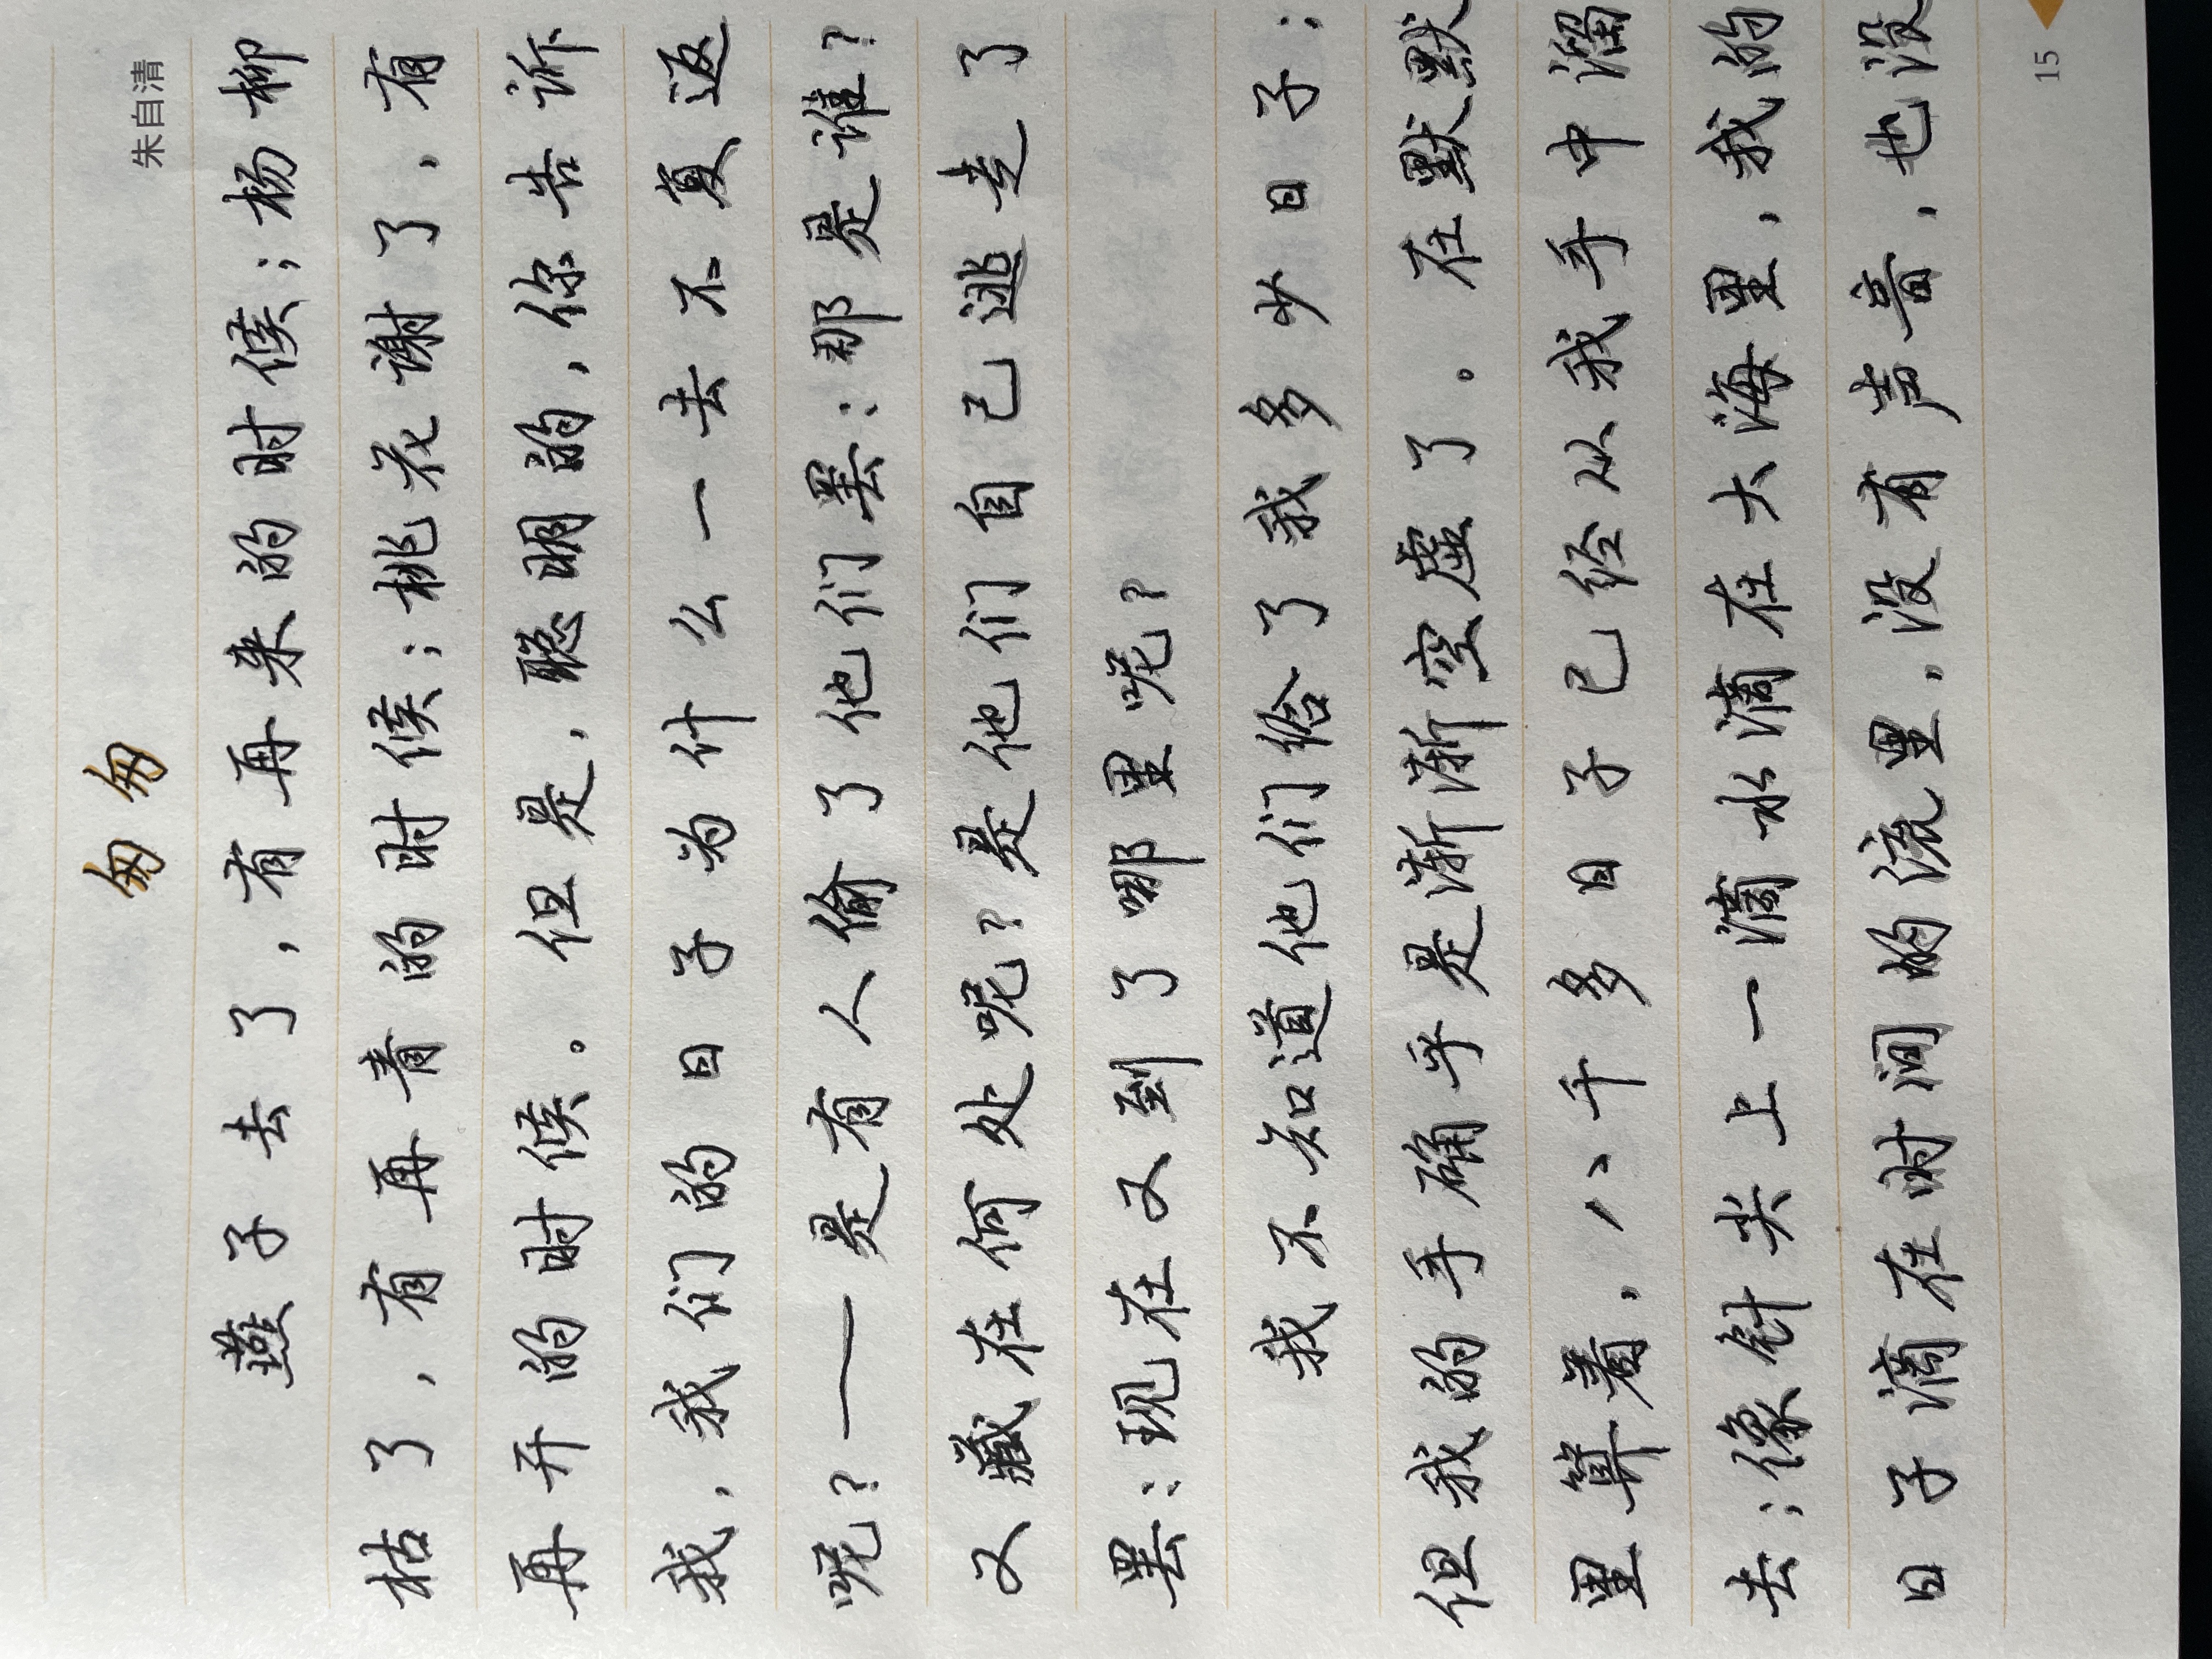 匆匆
朱自清
燕子去了,有再来的时候;杨柳
枯了,有再青的时候;桃花谢了,有
再开的时候。但是,聪明的,你告诉
我,我们的日子为什么一去不复返
呢?——是有人偷了他们罢:那是谁?
又藏在何处呢?是他们自己逃走了
罢:现在又到了哪里呢?
我不知道他们给了我多少日子;
但我的手确乎是渐渐空虚了。在默默
里算着,八千多日子已经从我手中溜
去;像针尖上一滴水滴在大海里,我的
日子滴在时间的流里,没有声音,也没
15